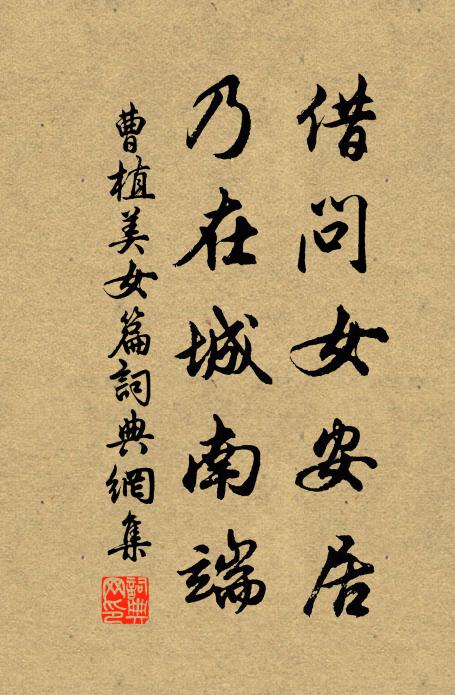 借問女安居
乃在城南端
曹植美女篇詞典網集
詞典
网印